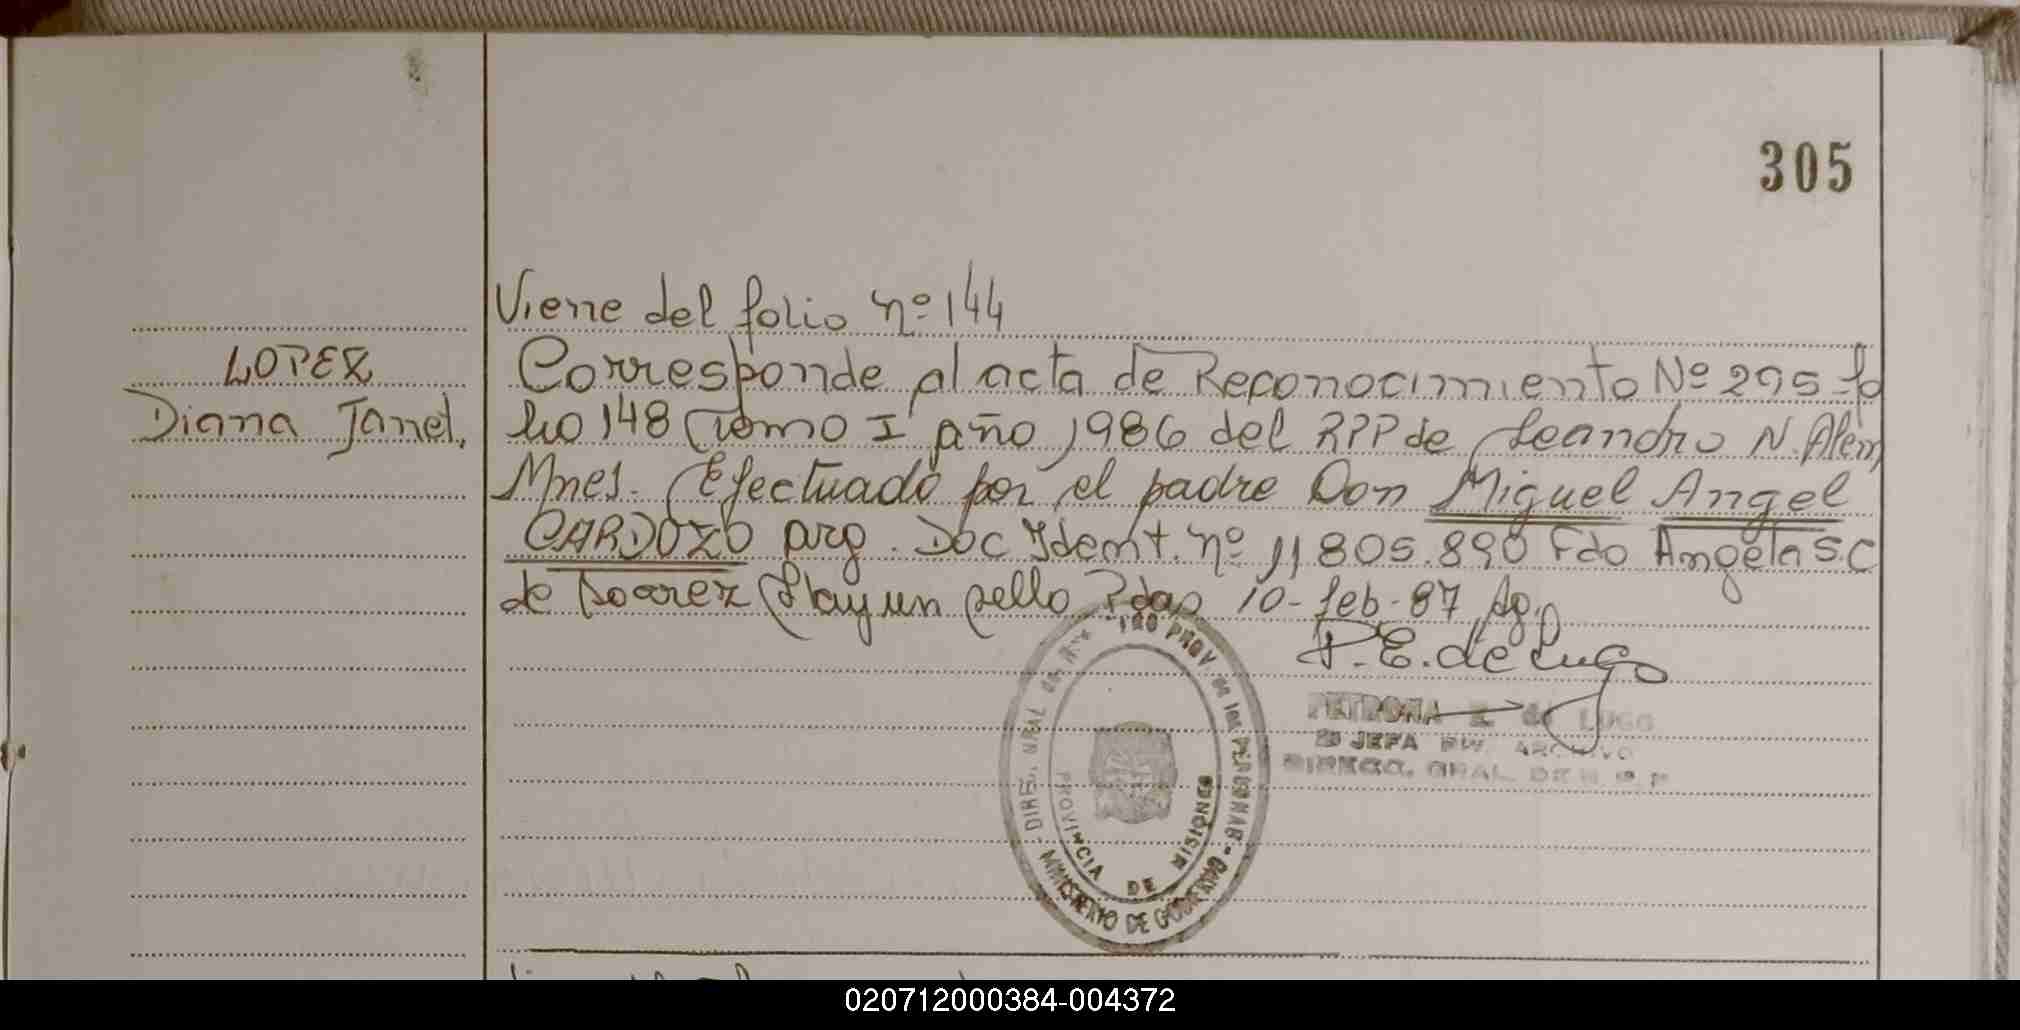 305
Viene del folio nº 144
LOPEZ
Diana Janet.
Corresponde al acta de Reconocimiento Nº 295 fo
lio 148 Tomo I año 1986 del RPP de Leandro N. Alem
Mnes. Efectuado por el padre Don Miguel Angel
CARDOZO arg. Doc Ident. nº 11.805.890 Fdo Angela S.C
de Soarez Hay un sello Pdas 10-feb-87
P.E. de Lugo
PETRONA E. de LUGO
JEFA DIV. ARCHIVO
DIRECC. GRAL. DE R. P. P
PROV. de las PERSONAS - MINISTERIO DE GOBIERNO
PROVINCIA DE MISIONES
020712000384-004372